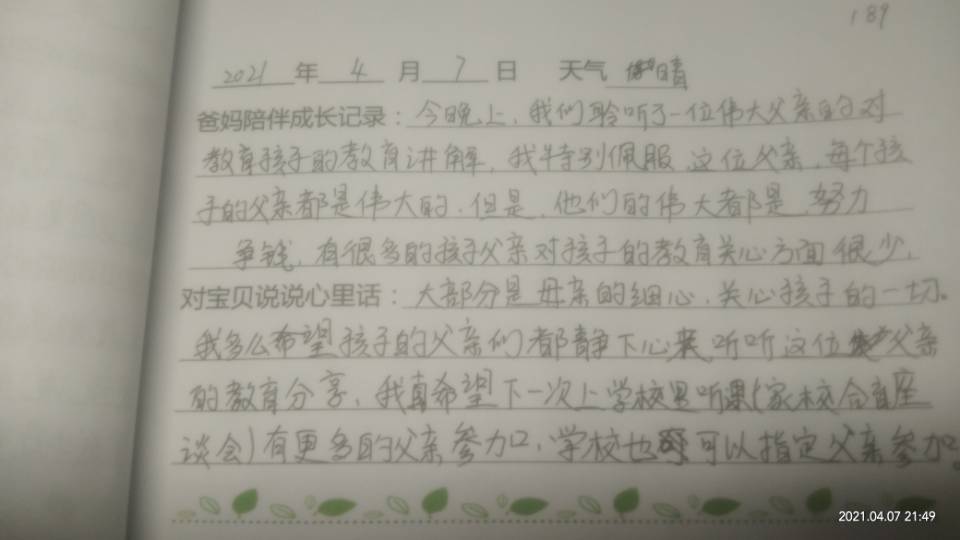 189
2021 年 4 月 7 日 天气 晴
爸妈陪伴成长记录：今晚上，我们聆听了一位伟大父亲的对
教育孩子的教育讲解，我特别佩服，这位父亲，每个孩
子的父亲都是伟大的，但是，他们的伟大都是，努力
争钱，有很多的孩子父亲对孩子的教育关心方面很少，
对宝贝说说心里话：大部分是母亲的细心，关心孩子的一切。
我多么希望孩子的父亲们都静下心来听听这位父亲
的教育分享，我真希望下一次上学校里听课(家校合育座
谈会)有更多的父亲参加，学校也可以指定父亲参加。
2021.04.07 21:49